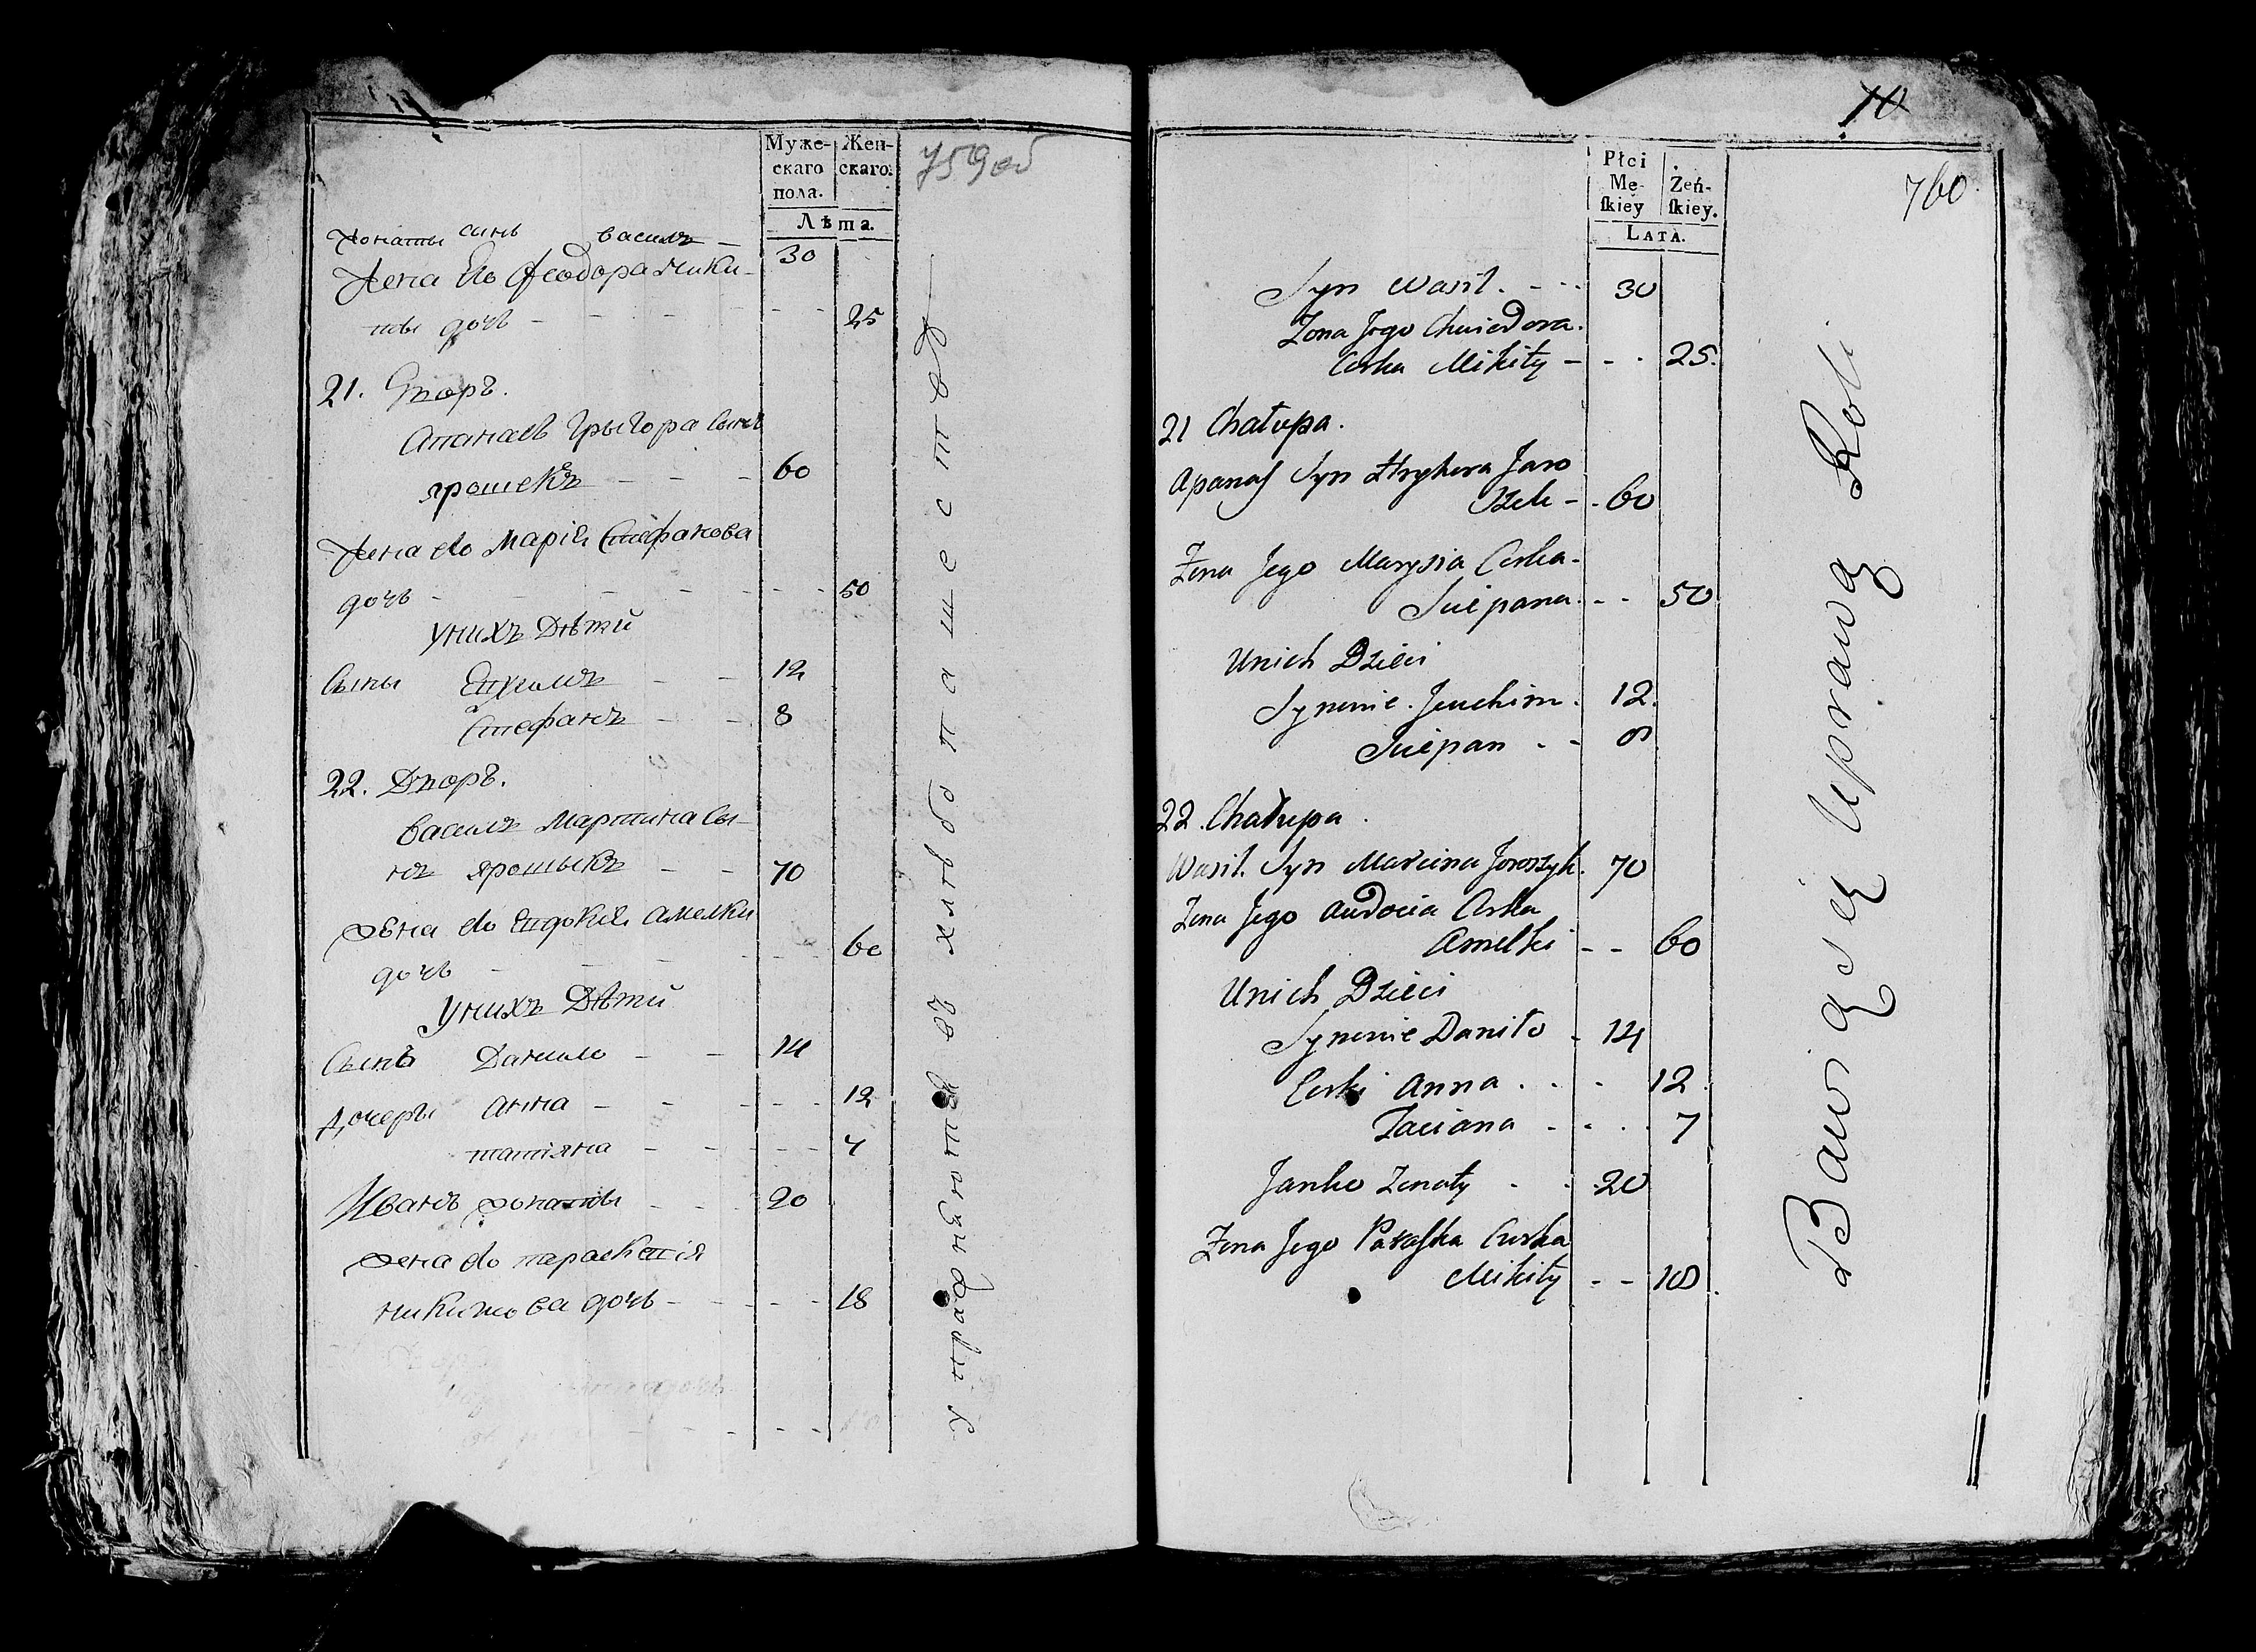 759 об
Муже-
скаго
пола.
Жен-
скаго.
Лѣта.
Жонаты сынъ Василъ — 30
Жена Его Феодора Мики-
ты дочъ - - - - 25
21. Дворъ.
Апанасъ Грыгора сынъ
Ярошекъ - - - 60
Жена его Марія Стефанова
дочъ - - - - 50
У нихъ Дѣти
Сыны Евхимъ - - 12
Стефанъ - - 8
22. Дворъ.
Василъ Мартина сы-
нъ Ярошыкъ - - 70
Жена его Евдокія Амелки
дочъ - - - - 60
У нихъ Дѣти
Сынъ Данило - - 14
Дочеры Анна - - - 12
Татіяна - - - 7
Иванъ Жонаты - - - 20
Жена его Параскевія
Микитова дочъ - - - 18
Упражняются въ хлѣбопашествѣ
10
760
Płci
Mę-
ſkiey
Żeń-
ſkiey.
LATA.
Syn Wasil. - - - 30
Zona Jego Chwiedora.
Corka Mikity - - - 25.
21 Chałupa.
Apanaſ Syn Hryhora Jaro
szek - - 60
Zona Jego Marysia Corka-
Sciepana. - - 50
Unich Dzieci
Synowie. Jeuchim. 12.
Sciepan - - 8
22. Chałupa.
Wasil. Syn Marcina Jaroszyk. 70
Zona Jego Audocia Corka
Amelki - - 60
Unich Dzieci
Synowie Daniło - 14
Corki Anna . . - 12.
Taciana - - . . 7
Janko Zonaty . . 20
Zona Jego Paraſka Curka
Mikity - - 18.
Bawią się Uprawą Roli